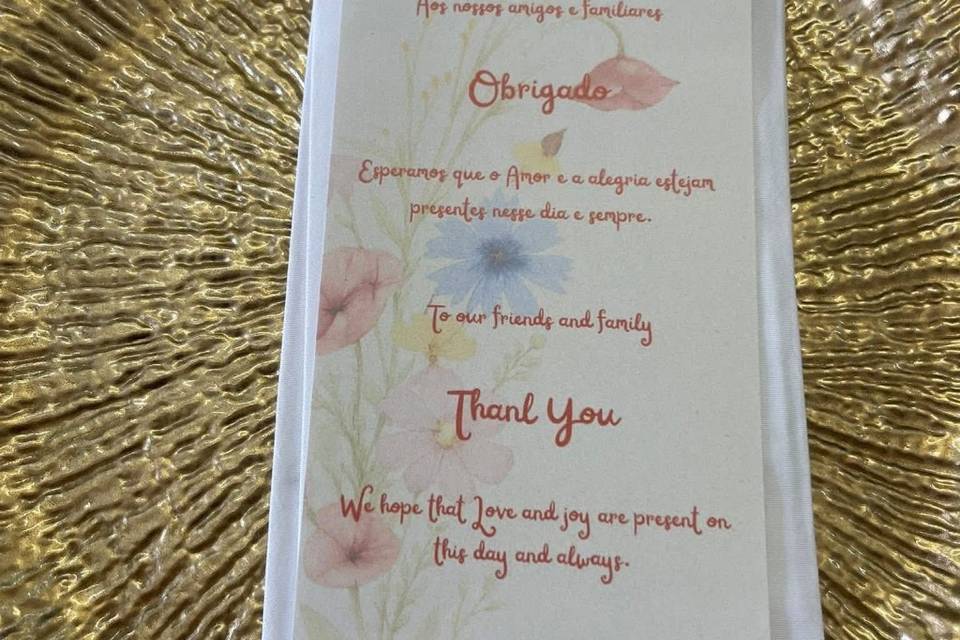 Aos nossos amigos e familiares
Obrigado
Esperamos que o Amor e a alegria estejam
presentes nesse dia e sempre.
To our friends and family
Thanl You
We hope that Love and joy are present on
this day and always.